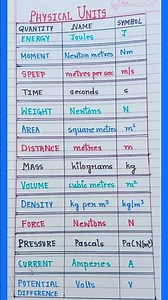 PHYSICAL UNITS
QUANTITY NAME SYMBOL
ENERGY Joules J
MOMENT Newton metres Nm
SPEED metres per sec m/s
TIME seconds s
WEIGHT Newtons N
AREA square metres m²
DISTANCE metres m
MASS kilograms kg
VOLUME cubic metres m³
DENSITY kg per m³ kg/m³
FORCE Newtons N
PRESSURE Pascals Pa(N/m²)
CURRENT Amperes A
POTENTIAL Volts V
DIFFERENCE